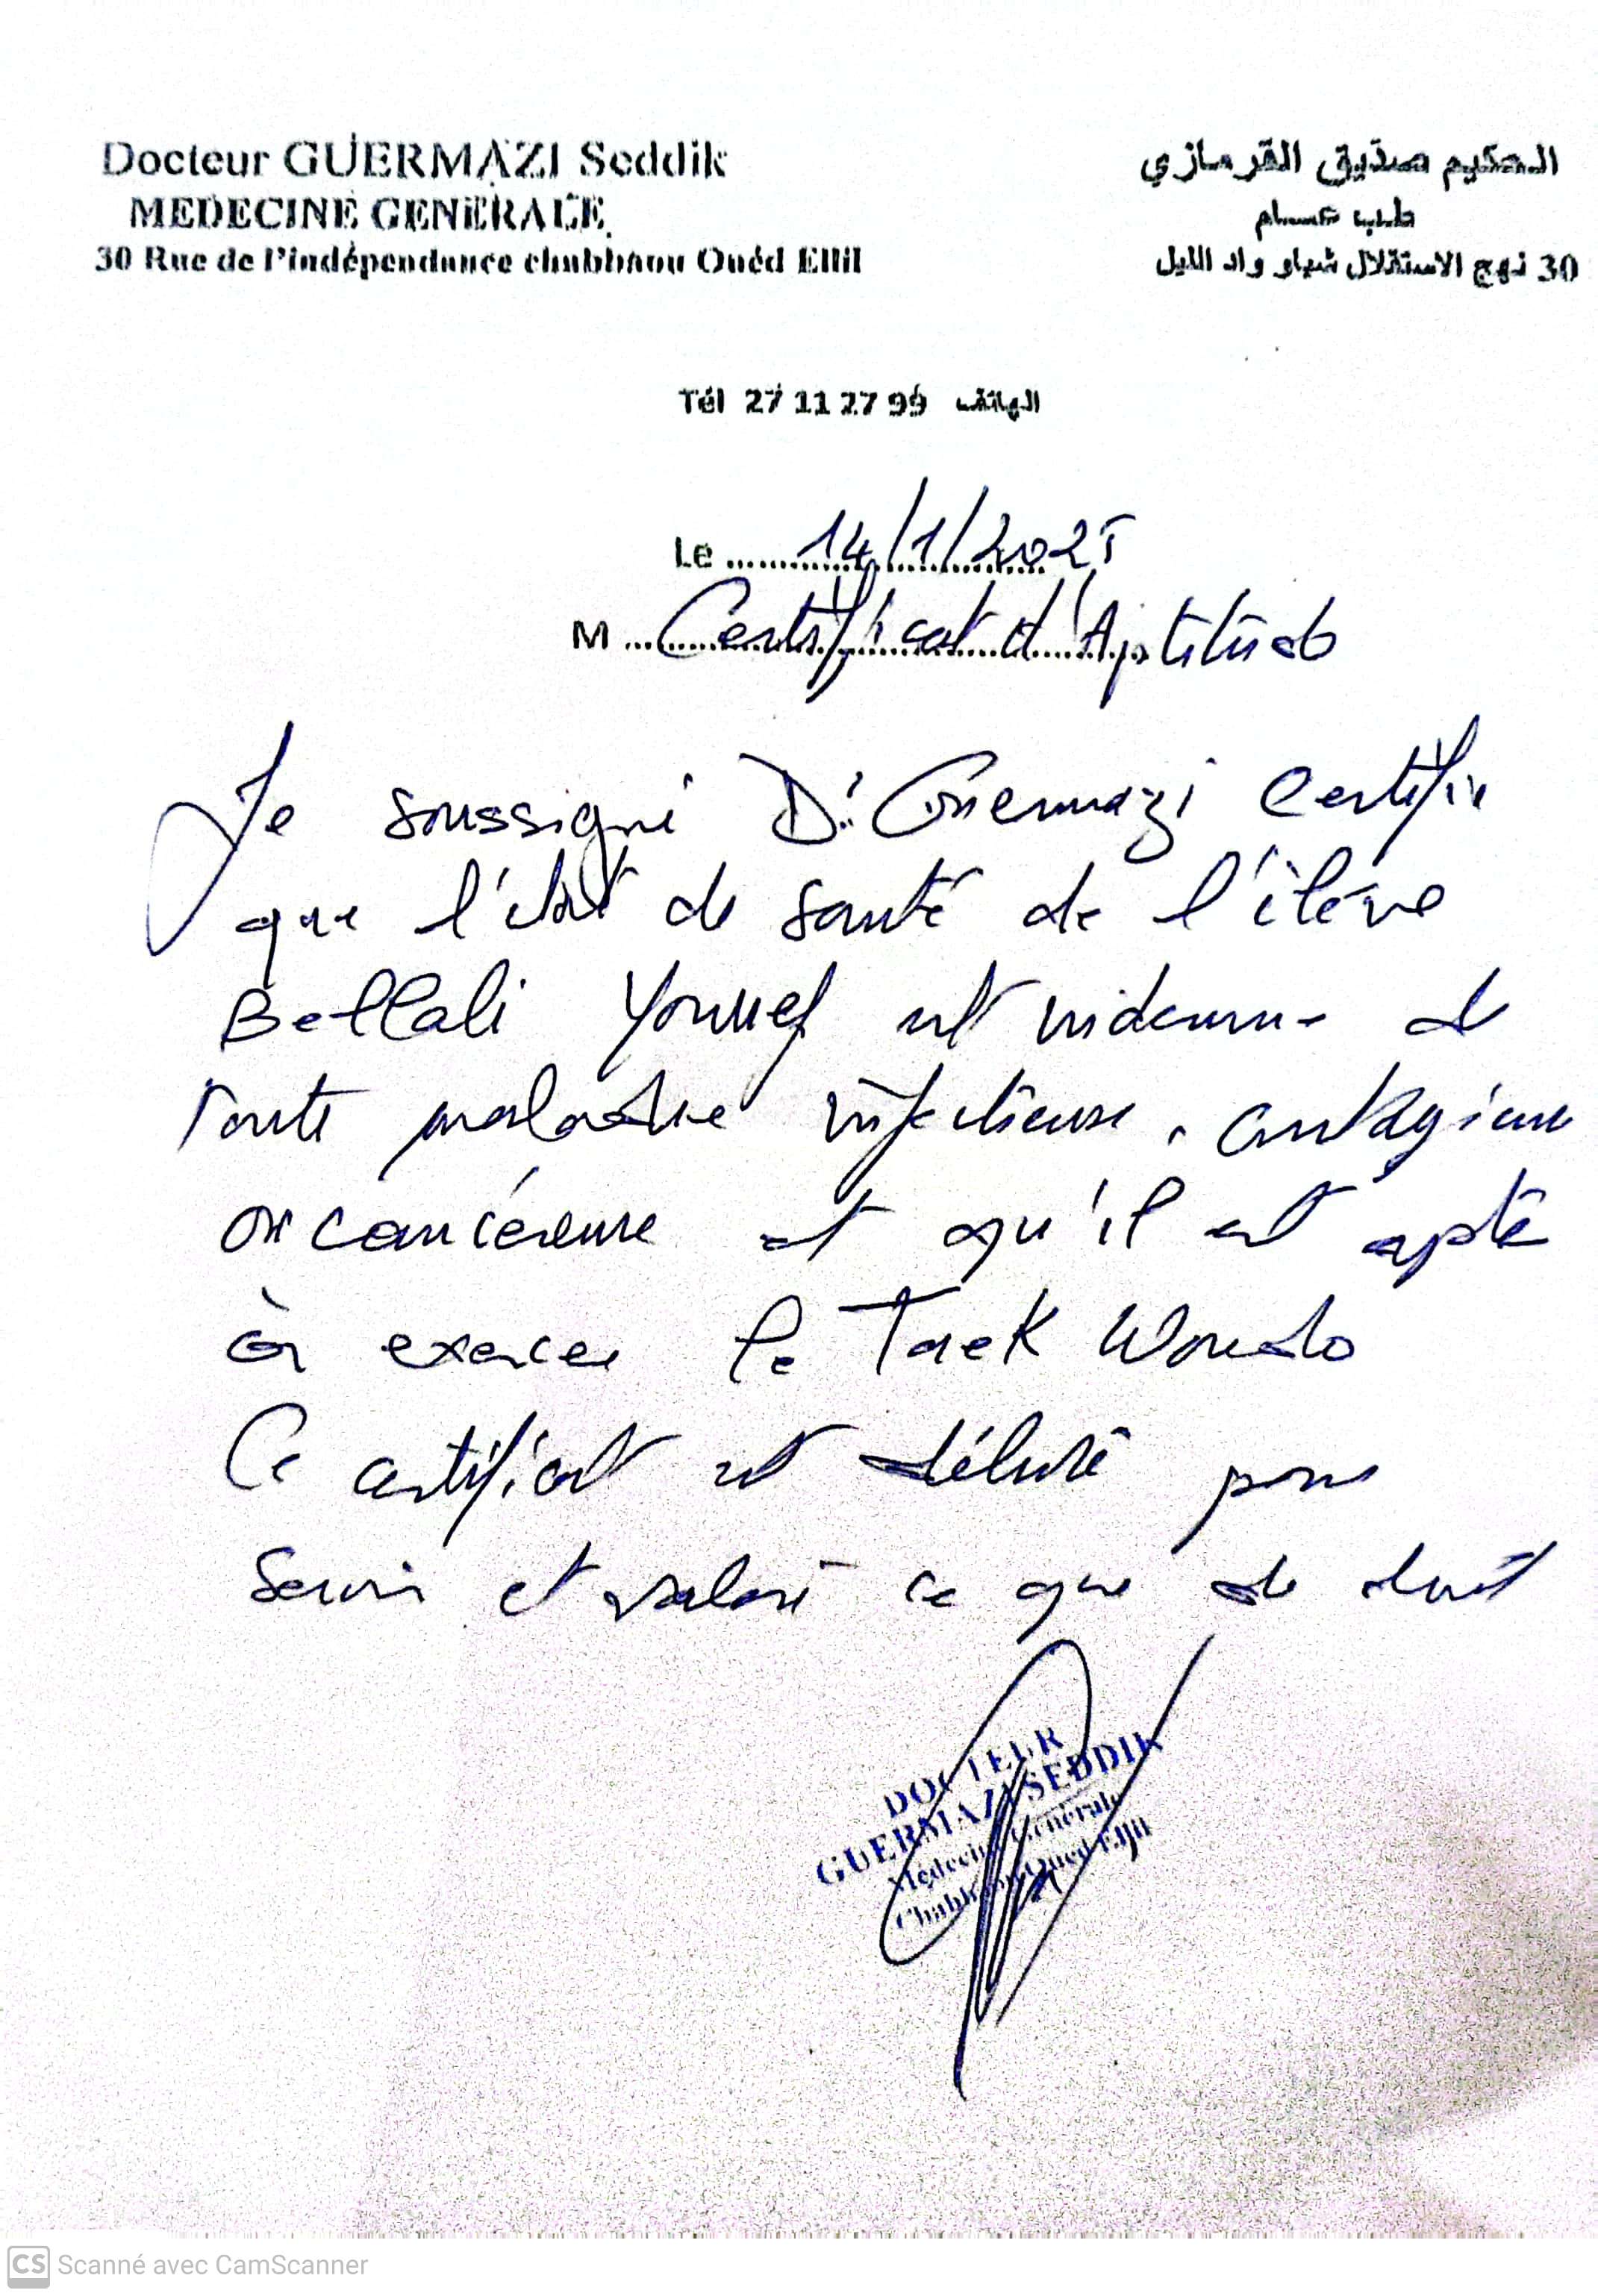 Docteur GUERMAZI Seddik
MEDECINE GENERALE
30 Rue de l'indépendance chabbaou Ouéd Ellil
الحكيم صديق القرمازي
طب عام
30 نهج الاستقلال شباو واد الليل
Tél 27 11 27 99 الهاتف
Le 14/1/2025
M Certificat d'Aptitude
Je soussigné Dr Guermazi certifie
que l'état de santé de l'élève
Bellali Youssef est indemne de
toute maladie infectieuse, contagieuse
ou cancéreuse et qu'il est apte
à exercer le Taek Wondo
Ce certificat est délivré pour
Servir et valoir ce que de droit
DOCTEUR
GUERMAZI SEDDIK
Médecine Générale
Chabbaou Oued Ellil
CS Scanné avec CamScanner